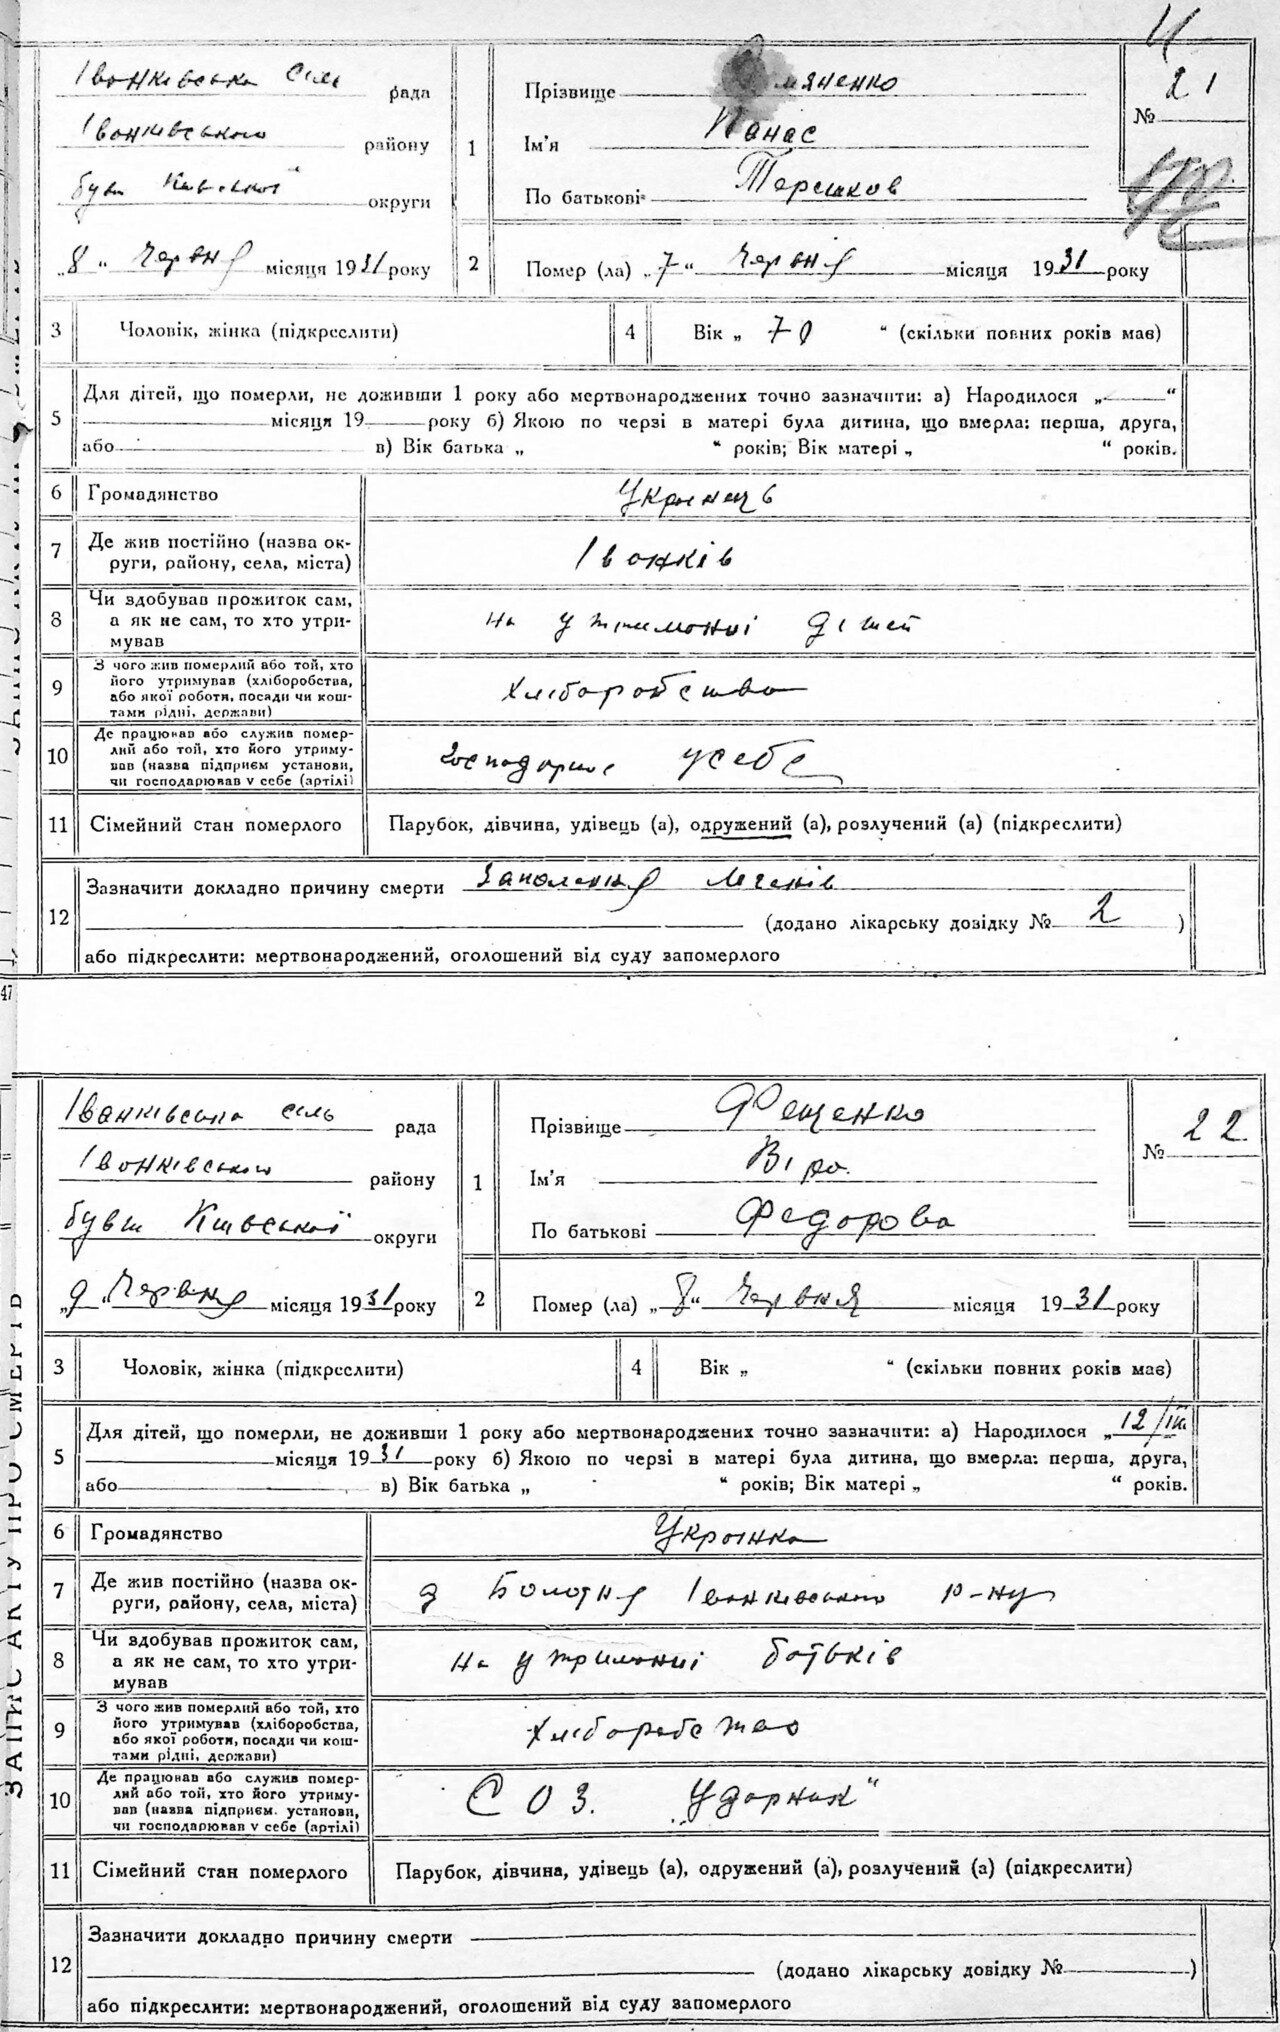 Іванківська сіль рада
Іванківського району
бувш Київської округи
„8“ Червня місяця 1931 року
1
Прізвище мяненко
Ім'я Панас
По батькові Терешков
№ 21
2
Помер (ла) „7“ Червня місяця 1931 року
3 Чоловік, жінка (підкреслити) 4 Вік „70“ (скільки повних років мав)
5
Для дітей, що померли, не доживши 1 року або мертвонароджених точно зазначити: а) Народилося „ “
місяця 19 року б) Якою по черзі в матері була дитина, що вмерла: перша, друга,
або в) Вік батька „ “ років; Вік матері „ “ років.
6 Громадянство Українець
7 Де жив постійно (назва ок-
руги, району, села, міста) Іванків
8 Чи здобував прожиток сам,
а як не сам, то хто утри-
мував на утриманні дітей
9 З чого жив померлий або той, хто
його утримував (хліборобства,
або якої роботи, посади чи кош-
тами рідні, держави) Хліборобство
10 Де працював або служив помер-
лий або той, хто його утриму-
вав (назва підприєм установи,
чи господарював у себе (артілі) Господарює у себе
11 Сімейний стан померлого Парубок, дівчина, удівець (а), одружений (а), розлучений (а) (підкреслити)
12
Зазначити докладно причину смерти Запалення легенів
(додано лікарську довідку № 2 )
або підкреслити: мертвонароджений, оголошений від суду запомерлого
47
Іванківська сіль рада
Іванківського району
бувш Київської округи
„9“ Червня місяця 1931 року
1
Прізвище Фещенко
Ім'я Віра
По батькові Федорова
№ 22
2
Помер (ла) „8“ Червня місяця 1931 року
3 Чоловік, жінка (підкреслити) 4 Вік „ “ (скільки повних років мав)
5
Для дітей, що померли, не доживши 1 року або мертвонароджених точно зазначити: а) Народилося „12/III
місяця 1931 року б) Якою по черзі в матері була дитина, що вмерла: перша, друга,
або в) Вік батька „ “ років; Вік матері „ “ років.
6 Громадянство Українка
7 Де жив постійно (назва ок-
руги, району, села, міста) Болотня Іванківського р-ну
8 Чи здобував прожиток сам,
а як не сам, то хто утри-
мував на утриманні батьків
9 З чого жив померлий або той, хто
його утримував (хліборобства,
або якої роботи, посади чи кош-
тами рідні, держави) Хліборобство
10 Де працював або служив помер-
лий або той, хто його утриму-
вав (назва підприєм. установи,
чи господарював у себе (артілі) СОЗ. „Ударник“
11 Сімейний стан померлого Парубок, дівчина, удівець (а), одружений (а), розлучений (а) (підкреслити)
12
Зазначити докладно причину смерти
(додано лікарську довідку № )
або підкреслити: мертвонароджений, оголошений від суду запомерлого
ЗАПИС АКТУ ПРО СМЕРТЬ